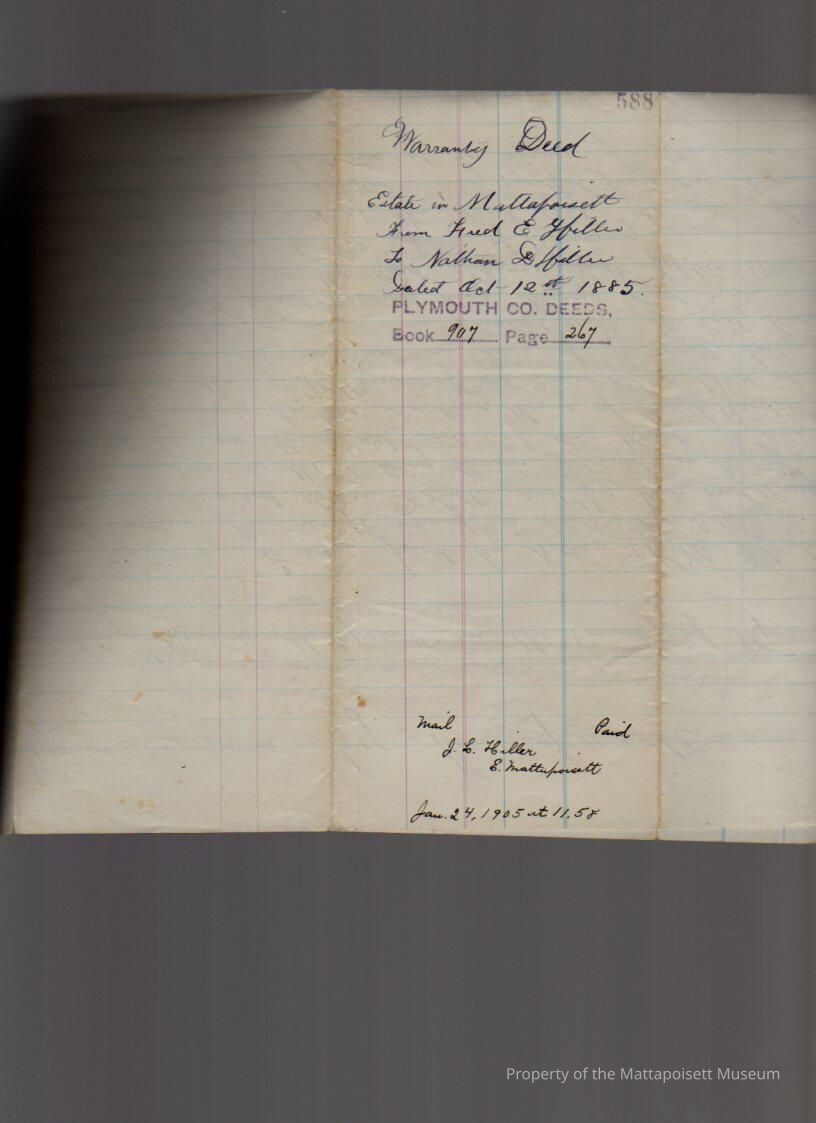 588
Warranty Deed
Estate in Mattapoisett
From Fred E Hiller
To Nathan D Hiller
Dated Oct 12th 1885.
PLYMOUTH CO. DEEDS,
Book 907 Page 267
Mail Paid
J. L. Hiller
E. Mattapoisett
Jan. 24, 1905 at 11.58
Property of the Mattapoisett Museum